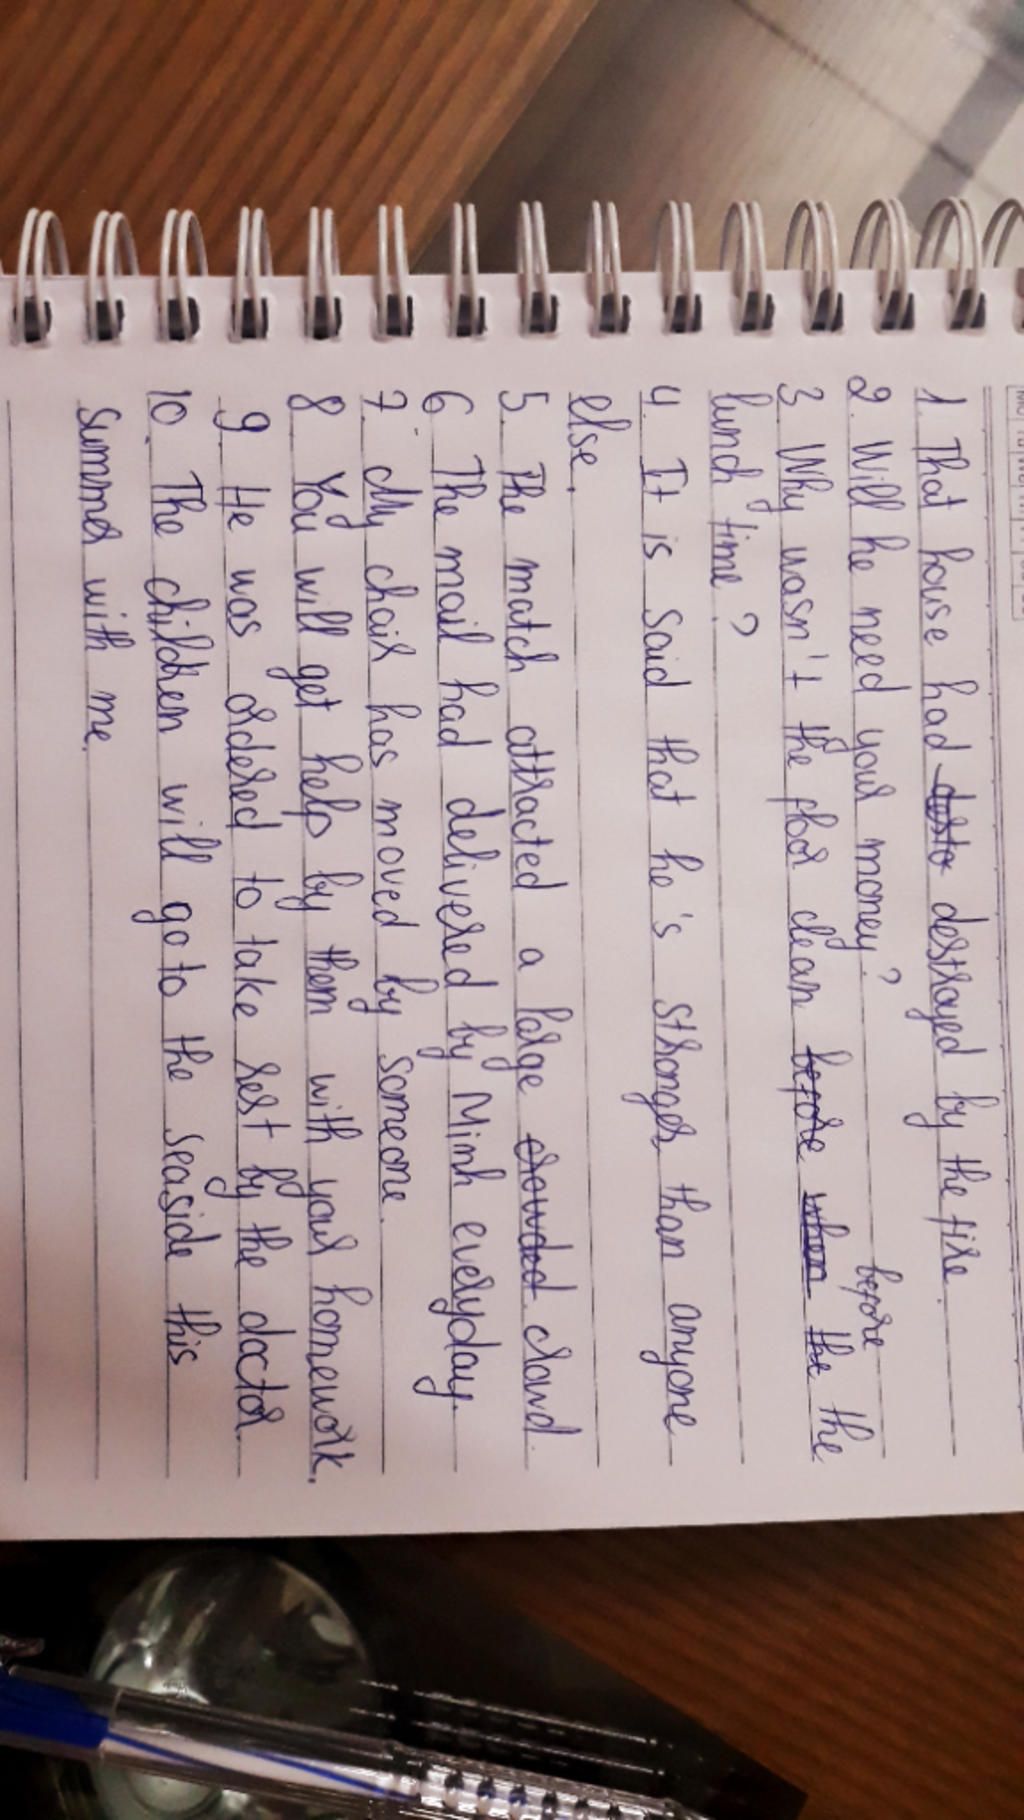 1. That house had destroyed by the fire.
2. Will he need your money?
3. Why wasn't the floor clean before the
lunch time?
4. It is said that he's stronger than anyone
else.
5. The match attracted a large crowd.
6. The mail had delivered by Minh everyday.
7. My chair has moved by someone.
8. You will get help by them with your homework.
9. He was ordered to take rest by the doctor.
10. The children will go to the seaside this
summer with me.